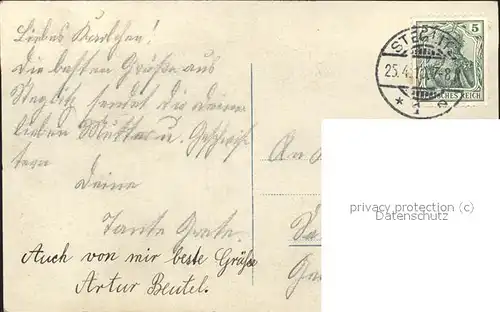 Liebes Karlchen!
Die besten Grüße aus
Steglitz sendet dir deiner
lieben Mutter u. Geschwis-
tern
Deine
Tante Grete.
Auch von mir beste Grüße
Artur Beutel.
An
STEGLITZ
25.4. 7-8
* 1 e
5
DEUTSCHES REICH
privacy protection (c)
Datenschutz